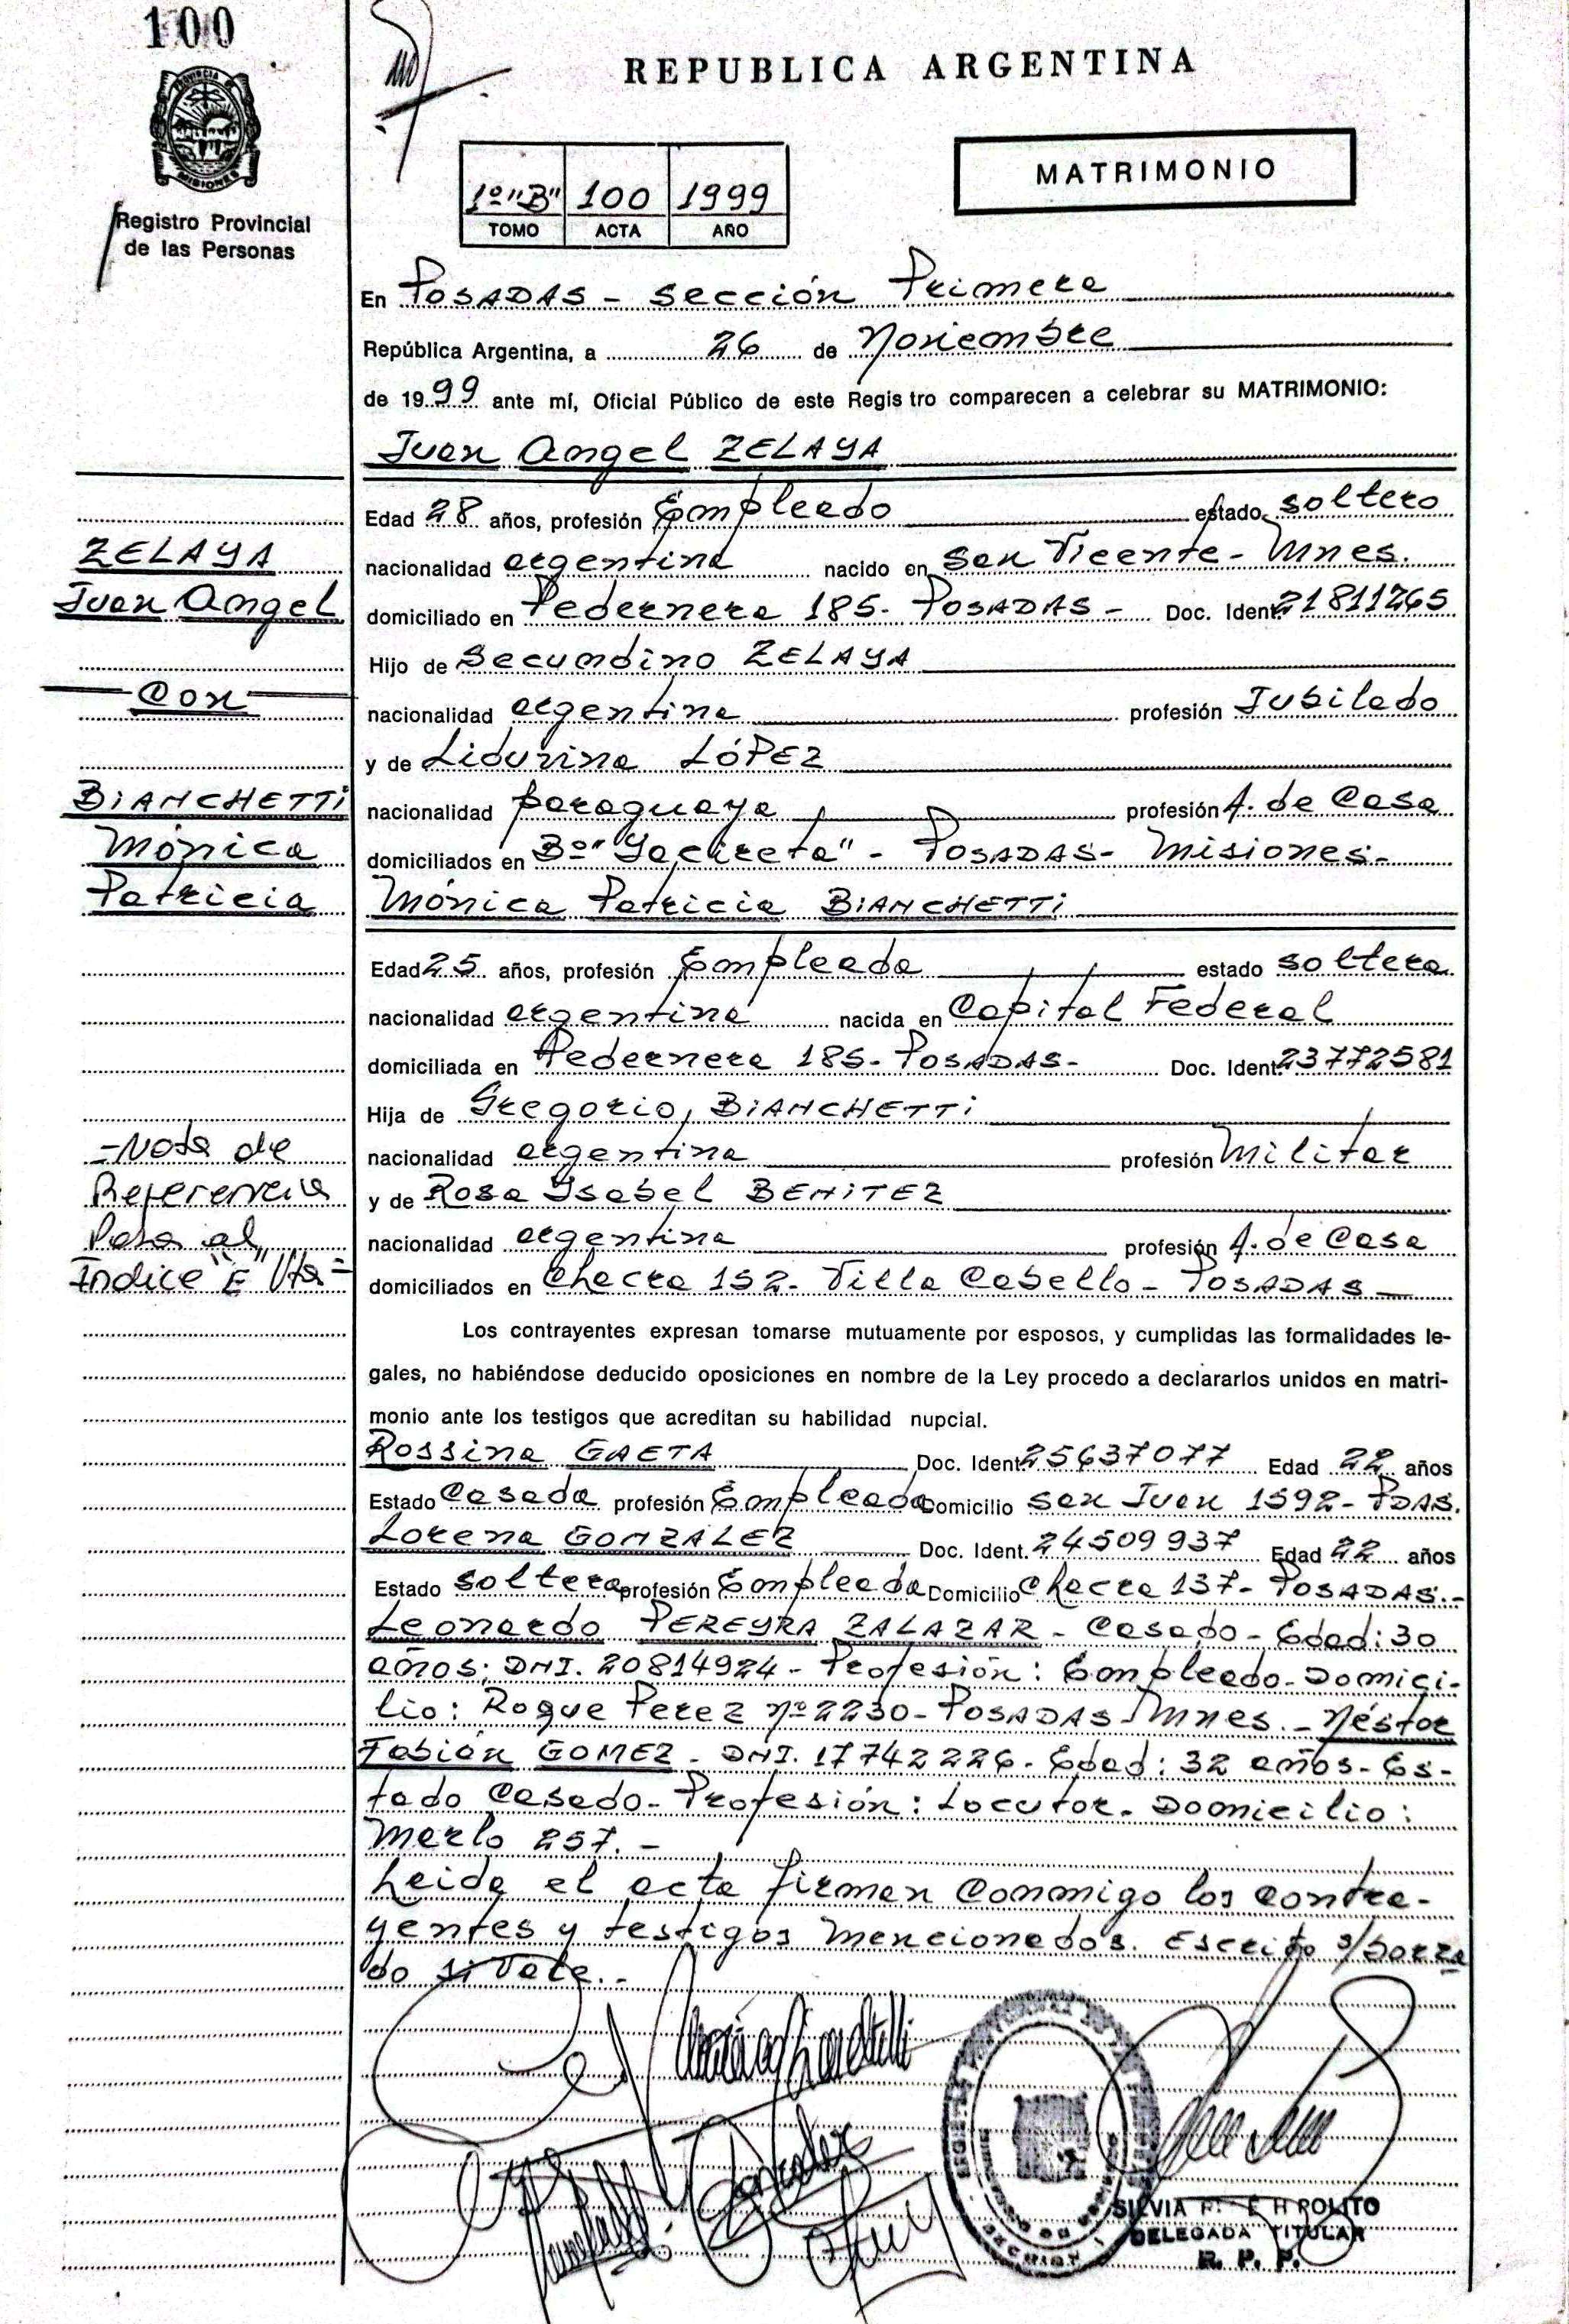 100
REPUBLICA ARGENTINA
PROVINCIA DE
MISIONES
Registro Provincial
de las Personas
1º "B" 100 1999
TOMO ACTA AÑO
MATRIMONIO
En POSADAS - Sección Primera
República Argentina, a 26 de Noviembre
de 1999 ante mí, Oficial Público de este Registro comparecen a celebrar su MATRIMONIO:
Juan Angel ZELAYA
Edad 28 años, profesión Empleado estado soltero
nacionalidad argentina nacido en San Vicente - Mnes.
domiciliado en Pedernera 185- POSADAS - Doc. Ident. 21811265
Hijo de Secundino ZELAYA
nacionalidad argentina profesión Jubilado
y de Liduvina LÓPEZ
nacionalidad paraguaya profesión A. de Casa
domiciliados en Bº "Yacireta" - POSADAS- Misiones-
Mónica Patricia BIANCHETTI
Edad 25 años, profesión Empleada estado soltera
nacionalidad argentina nacida en Capital Federal
domiciliada en Pedernera 185- POSADAS- Doc. Ident. 23772581
Hija de Gregorio, BIANCHETTI
nacionalidad argentina profesión Militar
y de Rosa Ysabel BENITEZ
nacionalidad argentina profesión A. de Casa
domiciliados en Chacra 152- Villa Cabello - POSADAS
Los contrayentes expresan tomarse mutuamente por esposos, y cumplidas las formalidades le-
gales, no habiéndose deducido oposiciones en nombre de la Ley procedo a declararlos unidos en matri-
monio ante los testigos que acreditan su habilidad nupcial.
Rossina GAETA Doc. Ident. 25637077 Edad 22 años
Estado Casada profesión Empleada Domicilio San Juan 1592- PDAS.
Lorena GONZALEZ Doc. Ident. 24509937 Edad 22 años
Estado soltera profesión Empleada Domicilio Chacra 137- POSADAS.-
Leonardo PEREYRA ZALAZAR - Casado - Edad: 30
años; DNI. 20814924 - Profesión: Empleado - Domici-
lio: Roque Perez Nº 2230- POSADAS - Mnes. - Néstor
Fabián GOMEZ - DNI. 17742226 - Edad: 32 años - Es-
tado Casado - Profesión: Locutor - Domicilio:
Merlo 257.-
Leida el acta firman conmigo los contra-
yentes y testigos mencionados. Escrito s/borra
do si Vale.-
ZELAYA
Juan Angel
con
BIANCHETTI
Mónica
Patricia
-Nota de
Referencia
Pasa al
Indice "E" Vta=
Gonzalez
SILVIA H POLITO
DELEGADA TITULAR
R. P. P.